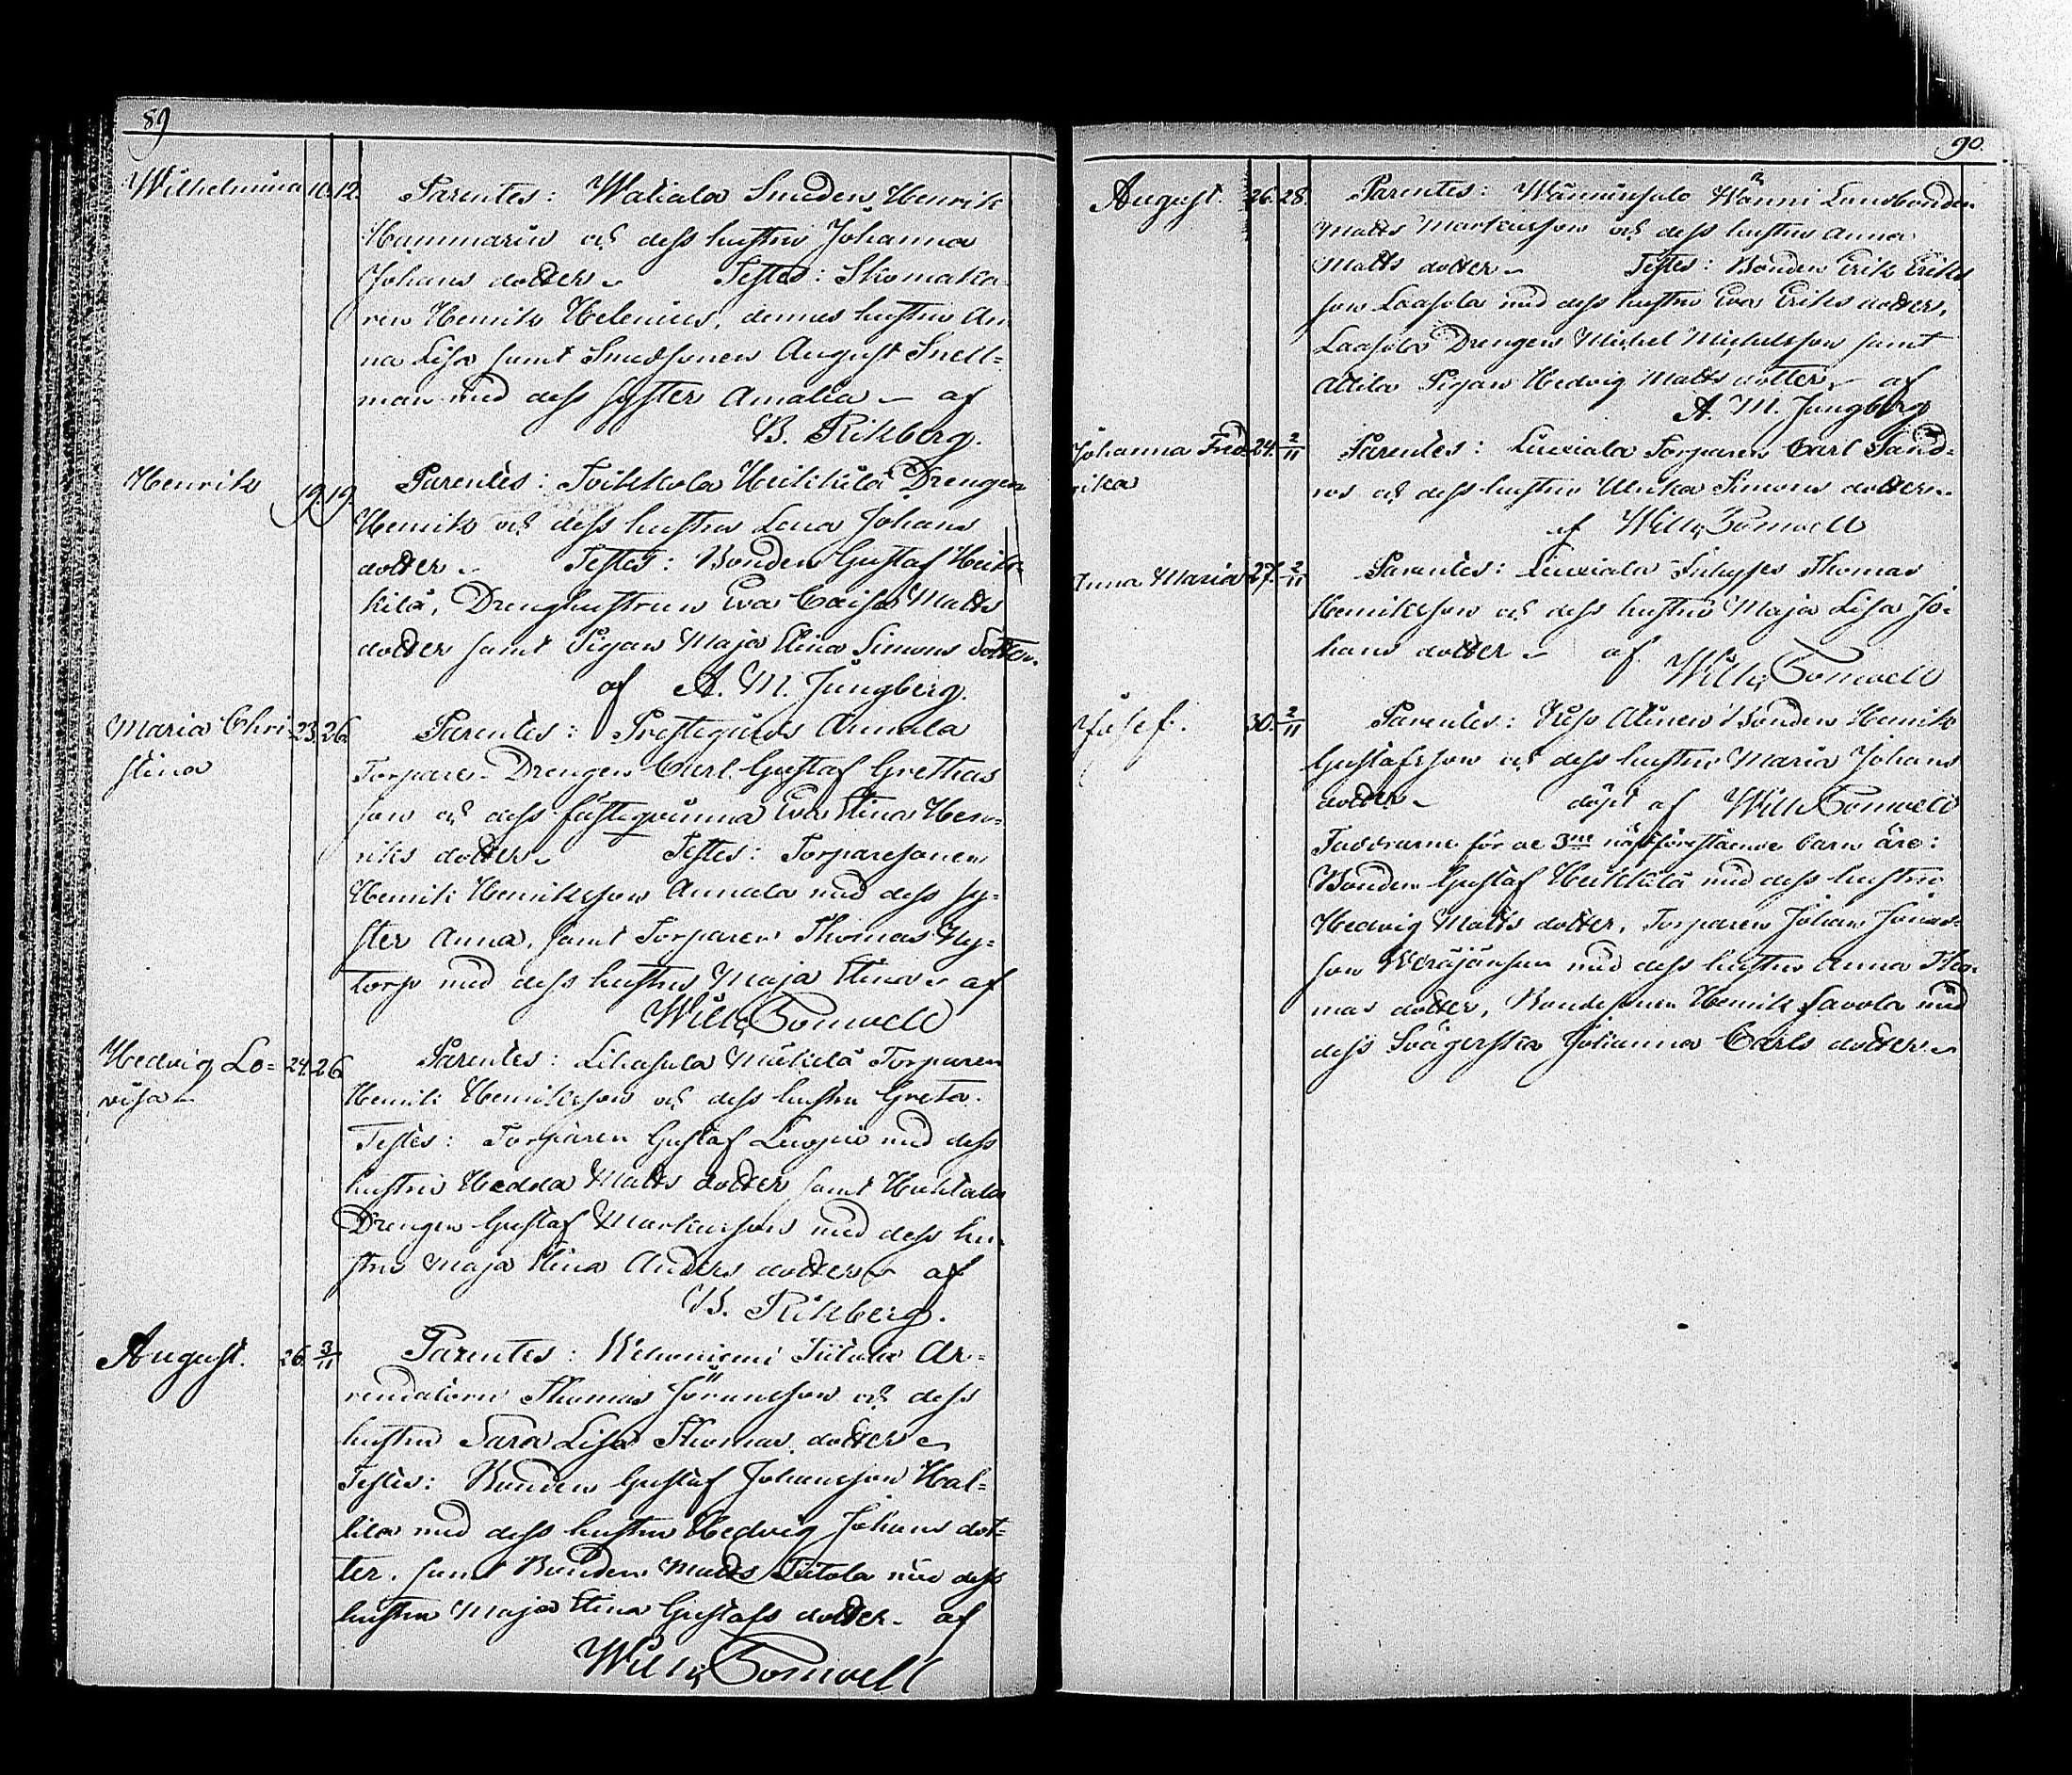 89
Wilhelmina 10. 12. Parentes: Waliala Smeden Henrik
Hammarin och dess hustru Johanna
Johans dotter Testes: Skomaka-
ren Henrik Helenius, dennes hustru An-
na Lisa samt Smedsonen August Snell-
man med dess syster Amalia - af
B. Rikberg.
Henrik 19. 19. Parentes: Toikkola Heikkilä Drengen
Henrik och dess hustru Lena Johans
dotter. Testes: Bonden Gustaf Heik-
kilä, Drenghustrun Eva Caisa Matts
dotter samt Pigan Maja Stina Simons dotter.
af A. M. Jungberg.
Maria Chri- 23. 26. Parentes: Prestegårds Annala
stina Torpare Drengen Carl Gustaf Grethas
son och dess fästeqvinna Eva Stina Hen-
riks dotter Testes: Torparesonen
Henrik Henriksson Annala med dess sy-
ster Anna, samt Torparen Thomas Ny-
torp med dess hustru Maja Stina - af
Wilh. Tomwell
Hedvig Lo- 24. 26. Parentes: Lihasula Mikkilä Torparen
visa Henrik Henriksson och dess hustru Greta.
Testes: Torparen Gustaf med dess
hustru Hedda Matts dotter samt
Drengen Gustaf Markusson med dess hu-
stru Maja Stina Anders dotter af
B. Rikberg.
August. 26. 3/11 Parentes: Wehoniemi Tiitola Ar-
rendatorn Thomas Göransson och dess
hustru Sara Lisa Thomas dotter
Testes: Bonden Gustaf Johansson Hal-
lila med dess hustru Hedvig Johans dot-
ter, samt Bonden Matts Tiitola med dess
hustru Maja Stina Gustafs dotter - af
Wilh. Tomwell
90.
August. 26. 28. Parentes: Wänni Landbonden
Matts Markusson och dess hustru Anna
Matts dotter Testes: Bonden Erik Eriks
son Laasola med dess hustru Eva Eriks dotter,
Laasola Drengen Michel Michelsson samt
Attila Pigan Hedvig Matts dotter, af
A. M. Jungberg
Johanna Fred- 24. 2/11 Parentes: Liuxiala Torparen Carl Sand-
rika ros och dess hustru Ulrika Simons dotter
af Wilh. Tomwell
Anna Maria 27. 2/11 Parentes: Liuxiala Inhyses Thomas
Henriksson och dess hustru Maja Lisa Jo-
hans dotter - af
Wilh. Tomwell
Josef. 30. 2/11 Parentes: Alinen Bonden Henrik
Gustafsson och dess hustru Maria Johans
dotter - döpt af Wilh. Tomwell
Faddrarne för de 3ne nästföregående barn äro:
Bonden Gustaf Heikkilä med dess hustru
Hedvig Matts dotter, Torparen Johan Jonas-
son med dess hustru Anna Tho-
mas dotter, Bondesonen Henrik Savola med
dess Svägerska Johanna Carls dotter